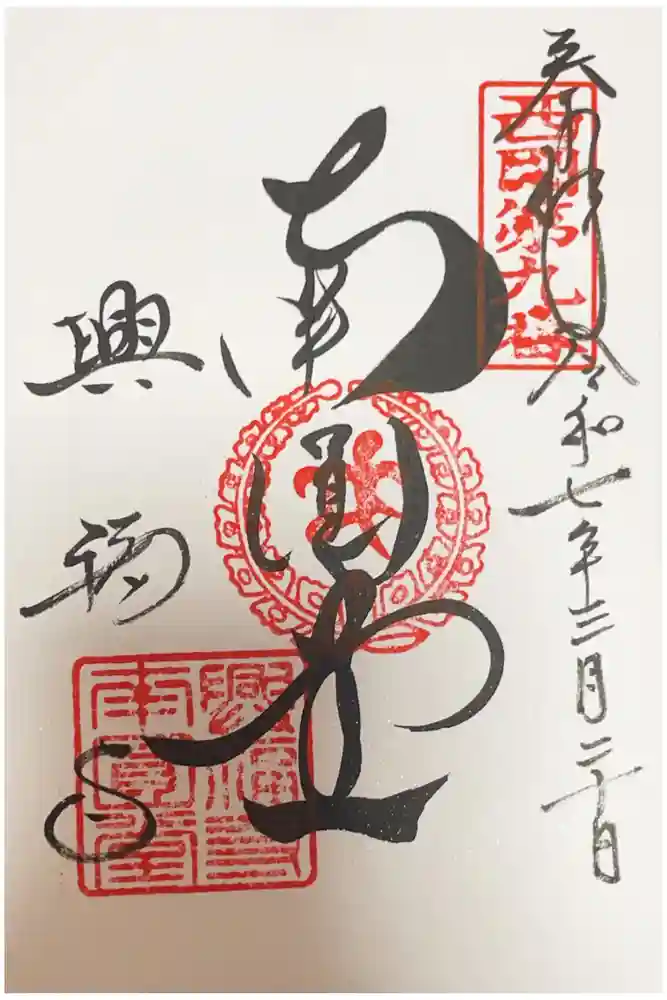 奉拝 令和七年三月二十日
西国第九番
南円堂
興福寺
興福寺
南圓堂